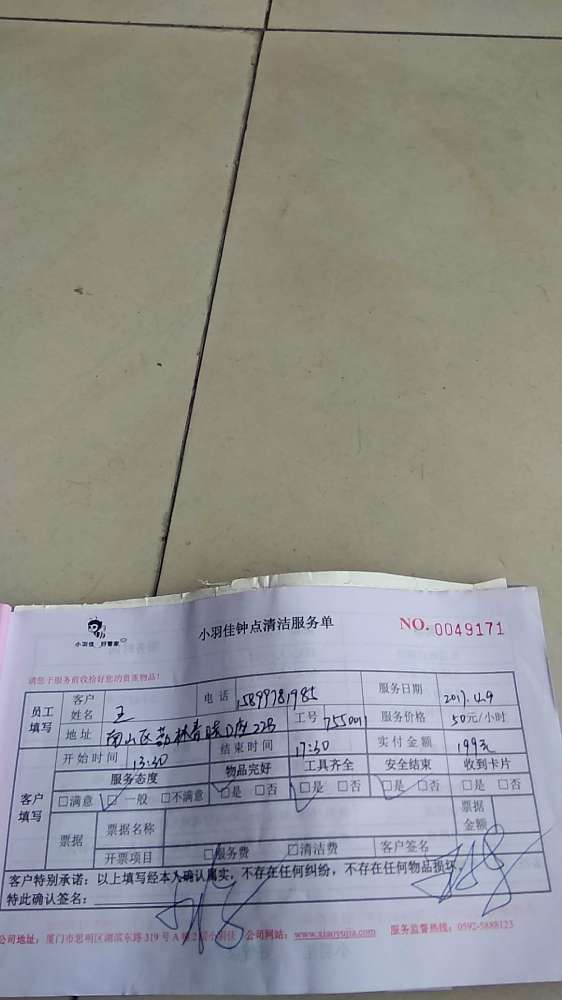 小羽佳 好管家
小羽佳钟点清洁服务单
NO. 0049171
请您于服务前收拾好您的贵重物品!
员工填写 客户姓名 王 电话 15899781985 服务日期 2017.4.9
地址 南山区 工号 755001 服务价格 50元/小时
开始时间 13:30 结束时间 17:30 实付金额 199元
客户填写 服务态度 物品完好 工具齐全 安全结束 收到卡片
□满意 □一般 □不满意 □是 □否 □是 □否 □是 □否 □是 □否
票据 票据名称 票据金额
开票项目 □服务费 □清洁费 客户签名
客户特别承诺:以上填写经本人确认属实,不存在任何纠纷,不存在任何物品损坏,
特此确认签名:
公司地址:厦门市思明区湖滨东路319号A栋2层小羽佳 公司网站:www.xiaoyujia.com 服务监督热线:0592-5888123